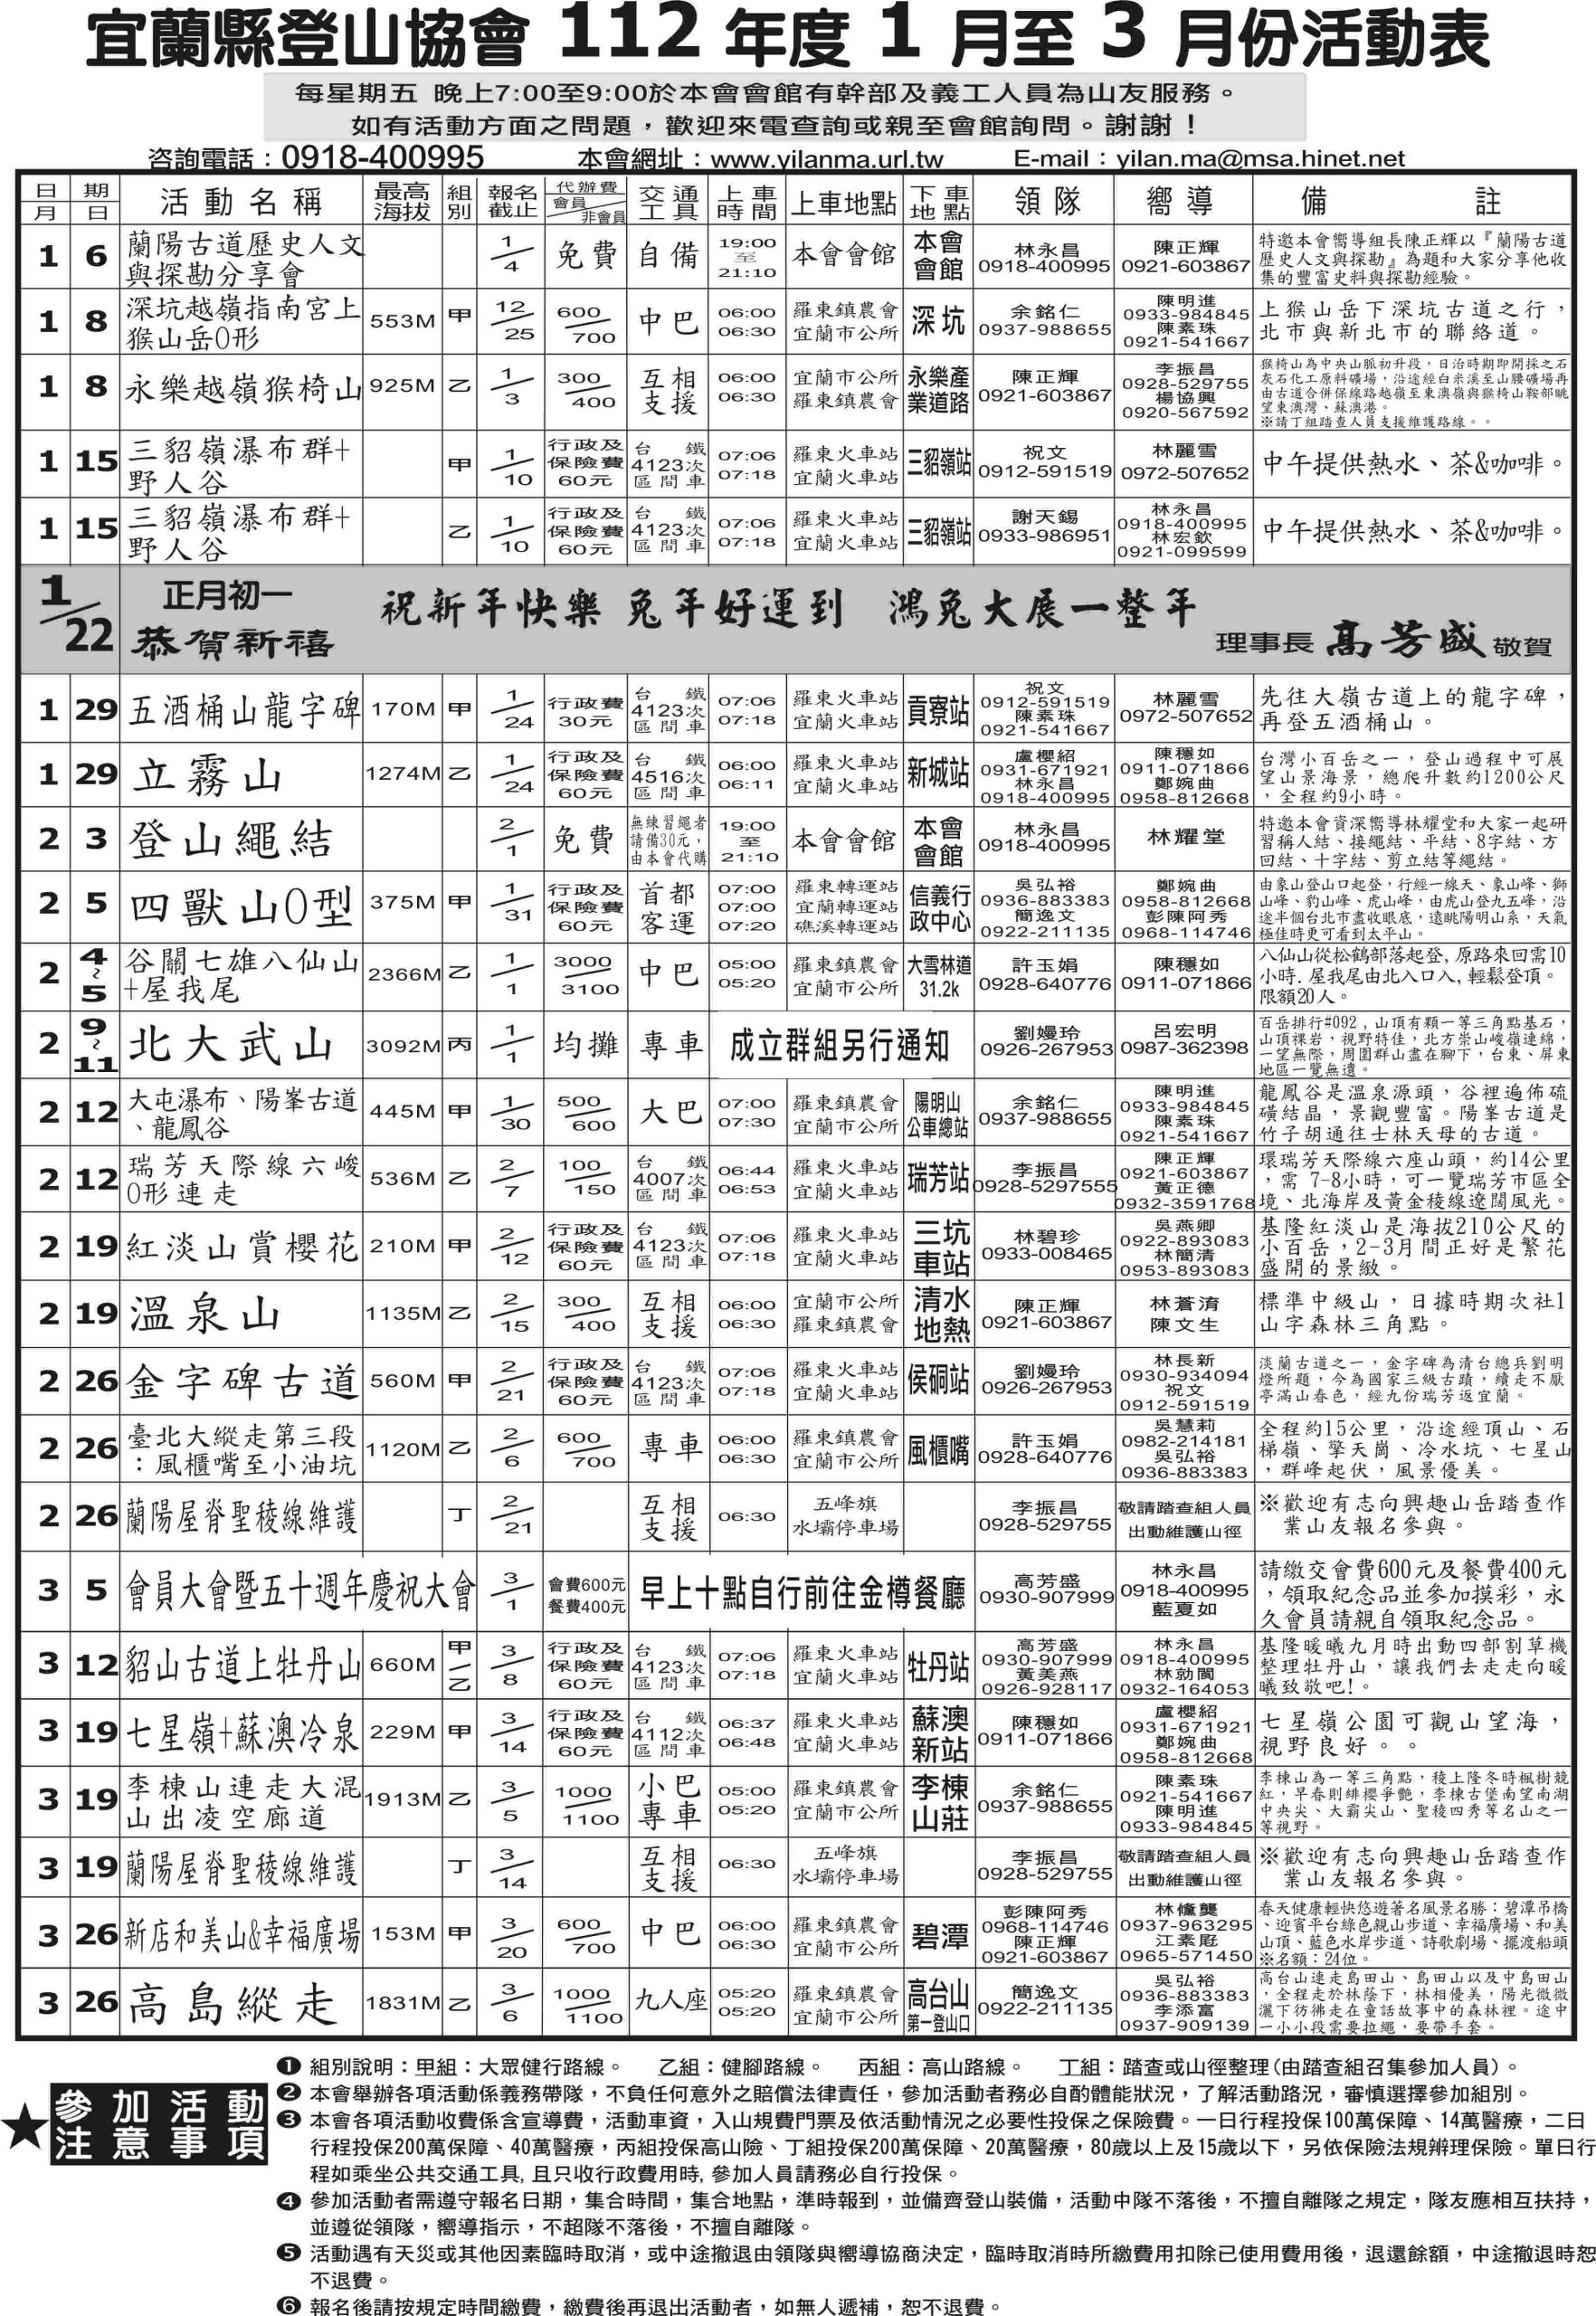 宜蘭縣登山協會 112 年度 1 月至 3 月份活動表
每星期五 晚上7:00至9:00於本會會館有幹部及義工人員為山友服務。
如有活動方面之問題，歡迎來電查詢或親至會館詢問。謝謝！
咨詢電話：0918-400995 本會網址：www.yilanma.url.tw E-mail：yilan.ma@msa.hinet.net
日月 期日 活動名稱 最高海拔 組別 報名截止 代辦費 會員 非會員 交通工具 上車時間 上車地點 下車地點 領隊 嚮導 備註
1 6 蘭陽古道歷史人文與探勘分享會 1/4 免費 自備 19:00至21:10 本會會館 本會會館 林永昌 0918-400995 陳正輝 0921-603867 特邀本會嚮導組長陳正輝以『蘭陽古道歷史人文與探勘』為題和大家分享他收集的豐富史料與探勘經驗。
1 8 深坑越嶺指南宮上猴山岳O形 553M 甲 12/25 600/700 中巴 06:00 06:30 羅東鎮農會 宜蘭市公所 深坑 余銘仁 0937-988655 陳明進 0933-984845 陳素珠 0921-541667 上猴山岳下深坑古道之行，北市與新北市的聯絡道。
1 8 永樂越嶺猴椅山 925M 乙 1/3 300/400 互相支援 06:00 06:30 宜蘭市公所 羅東鎮農會 永樂產業道路 陳正輝 0921-603867 李振昌 0928-529755 楊協興 0920-567592 猴椅山為中央山脈初升段，日治時期即開採之石灰石化工原料礦場，沿途經白米溪至山腰礦場再由古道合併保線路越嶺至東澳嶺與猴椅山鞍部眺望東澳灣、蘇澳港。※請丁組踏查人員支援維護路線。。
1 15 三貂嶺瀑布群+野人谷 甲 1/10 行政及保險費60元 台鐵4123次區間車 07:06 07:18 羅東火車站 宜蘭火車站 三貂嶺站 祝文 0912-591519 林麗雪 0972-507652 中午提供熱水、茶&咖啡。
1 15 三貂嶺瀑布群+野人谷 乙 1/10 行政及保險費60元 台鐵4123次區間車 07:06 07:18 羅東火車站 宜蘭火車站 三貂嶺站 謝天錫 0933-986951 林永昌 0918-400995 林宏欽 0921-099599 中午提供熱水、茶&咖啡。
1/22 正月初一 恭賀新禧 祝新年快樂 兔年好運到 鴻兔大展一整年 理事長 高芳盛 敬賀
1 29 五酒桶山龍字碑 170M 甲 1/24 行政費30元 台鐵4123次區間車 07:06 07:18 羅東火車站 宜蘭火車站 貢寮站 祝文 0912-591519 陳素珠 0921-541667 林麗雪 0972-507652 先往大嶺古道上的龍字碑，再登五酒桶山。
1 29 立霧山 1274M 乙 1/24 行政及保險費60元 台鐵4516次區間車 06:00 06:11 羅東火車站 宜蘭火車站 新城站 盧櫻紹 0931-671921 林永昌 0918-400995 陳穩如 0911-071866 鄭婉曲 0958-812668 台灣小百岳之一，登山過程中可展望山景海景，總爬升數約1200公尺，全程約9小時。
2 3 登山繩結 2/1 免費 無練習繩者請備30元，由本會代購 19:00至21:10 本會會館 本會會館 林永昌 0918-400995 林耀堂 特邀本會資深嚮導林耀堂和大家一起研習稱人結、接繩結、平結、8字結、方回結、十字結、剪立結等繩結。
2 5 四獸山O型 375M 甲 1/31 行政及保險費60元 首都客運 07:00 07:00 07:20 羅東轉運站 宜蘭轉運站 礁溪轉運站 信義行政中心 吳弘裕 0936-883383 簡逸文 0922-211135 鄭婉曲 0958-812668 彭陳阿秀 0968-114746 由象山登山口起登，行經一線天、象山峰、獅山峰、豹山峰、虎山峰，由虎山登九五峰，沿途半個台北市盡收眼底，遠眺陽明山系，天氣極佳時更可看到太平山。
2 4~5 谷關七雄八仙山+屋我尾 2366M 乙 1/1 3000/3100 中巴 05:00 05:20 羅東鎮農會 宜蘭市公所 大雪林道31.2k 許玉娟 0928-640776 陳穩如 0911-071866 八仙山從松鶴部落起登,原路來回需10小時.屋我尾由北入口入,輕鬆登頂。限額20人。
2 9~11 北大武山 3092M 丙 1/1 均攤 專車 成立群組另行通知 劉嫚玲 0926-267953 呂宏明 0987-362398 百岳排行#092，山頂有顆一等三角點基石，山頂裸岩，視野特佳，北方崇山峻嶺連綿，一望無際，周圍群山盡在腳下，台東、屏東地區一覽無遺。
2 12 大屯瀑布、陽峯古道、龍鳳谷 445M 甲 1/30 500/600 大巴 07:00 07:30 羅東鎮農會 宜蘭市公所 陽明山公車總站 余銘仁 0937-988655 陳明進 0933-984845 陳素珠 0921-541667 龍鳳谷是溫泉源頭，谷裡遍佈硫磺結晶，景觀豐富。陽峯古道是竹子胡通往士林天母的古道。
2 12 瑞芳天際線六峻O形連走 536M 乙 2/7 100/150 台鐵4007次區間車 06:44 06:53 羅東火車站 宜蘭火車站 瑞芳站 李振昌 0928-5297555 陳正輝 0921-603867 黃正德 0932-3591768 環瑞芳天際線六座山頭，約14公里，需 7-8小時，可一覽瑞芳市區全境、北海岸及黃金稜線遼闊風光。
2 19 紅淡山賞櫻花 210M 甲 2/12 行政及保險費60元 台鐵4123次區間車 07:06 07:18 羅東火車站 宜蘭火車站 三坑車站 林碧珍 0933-008465 吳燕卿 0922-893083 林簡清 0953-893083 基隆紅淡山是海拔210公尺的小百岳，2-3月間正好是繁花盛開的景緻。
2 19 溫泉山 1135M 乙 2/15 300/400 互相支援 06:00 06:30 宜蘭市公所 羅東鎮農會 清水地熱 陳正輝 0921-603867 林蒼淯 陳文生 標準中級山，日據時期次社1山字森林三角點。
2 26 金字碑古道 560M 甲 2/21 行政及保險費60元 台鐵4123次區間車 07:06 07:18 羅東火車站 宜蘭火車站 侯硐站 劉嫚玲 0926-267953 林長新 0930-934094 祝文 0912-591519 淡蘭古道之一，金字碑為清台總兵劉明燈所題，今為國家三級古蹟，續走不厭亭滿山春色，經九份瑞芳返宜蘭。
2 26 臺北大縱走第三段：風櫃嘴至小油坑 1120M 乙 2/6 600/700 專車 06:00 06:30 羅東鎮農會 宜蘭市公所 風櫃嘴 許玉娟 0928-640776 吳慧莉 0982-214181 吳弘裕 0936-883383 全程約15公里，沿途經頂山、石梯嶺、擎天崗、冷水坑、七星山，群峰起伏，風景優美。
2 26 蘭陽屋脊聖稜線維護 丁 2/21 互相支援 06:30 五峰旗水壩停車場 李振昌 0928-529755 敬請踏查組人員出動維護山徑 ※歡迎有志向興趣山岳踏查作業山友報名參與。
3 5 會員大會暨五十週年慶祝大會 3/1 會費600元 餐費400元 早上十點自行前往金樽餐廳 高芳盛 0930-907999 林永昌 0918-400995 藍夏如 請繳交會費600元及餐費400元，領取紀念品並參加摸彩，永久會員請親自領取紀念品。
3 12 貂山古道上牡丹山 660M 甲/乙 3/8 行政及保險費60元 台鐵4123次區間車 07:06 07:18 羅東火車站 宜蘭火車站 牡丹站 高芳盛 0930-907999 黃美燕 0926-928117 林永昌 0918-400995 林勃閣 0932-164053 基隆暖曦九月時出動四部割草機整理牡丹山，讓我們去走走向暖曦致敬吧!。
3 19 七星嶺+蘇澳冷泉 229M 甲 3/14 行政及保險費60元 台鐵4112次區間車 06:37 06:48 羅東火車站 宜蘭火車站 蘇澳新站 陳穩如 0911-071866 盧櫻紹 0931-671921 鄭婉曲 0958-812668 七星嶺公園可觀山望海，視野良好。。
3 19 李棟山連走大混山出凌空廊道 1913M 乙 3/5 1000/1100 小巴專車 05:00 05:20 羅東鎮農會 宜蘭市公所 李棟山莊 余銘仁 0937-988655 陳素珠 0921-541667 陳明進 0933-984845 李棟山為一等三角點，稜上隆冬時楓樹競紅，早春則緋櫻爭艷，李棟古堡南望南湖中央尖、大霸尖山、聖稜四秀等名山之一等視野。
3 19 蘭陽屋脊聖稜線維護 丁 3/14 互相支援 06:30 五峰旗水壩停車場 李振昌 0928-529755 敬請踏查組人員出動維護山徑 ※歡迎有志向興趣山岳踏查作業山友報名參與。
3 26 新店和美山&幸福廣場 153M 甲 3/20 600/700 中巴 06:00 06:30 羅東鎮農會 宜蘭市公所 碧潭 彭陳阿秀 0968-114746 陳正輝 0921-603867 林儵龑 0937-963295 江素 0965-571450 春天健康輕快悠遊著名風景名勝：碧潭吊橋、迎賓平台綠色親山步道、幸福廣場、和美山頂、藍色水岸步道、詩歌劇場、擺渡船頭※名額：24位。
3 26 高島縱走 1831M 乙 3/6 1000/1100 九人座 05:20 05:20 羅東鎮農會 宜蘭市公所 高台山第一登山口 簡逸文 0922-211135 吳弘裕 0936-883383 李添富 0937-909139 高台山連走島田山、島田山以及中島田山，全程走於林蔭下，林相優美，陽光微微灑下彷彿走在童話故事中的森林裡。途中一小小段需要拉繩，要帶手套。
★參加活動注意事項
❶ 組別說明：甲組：大眾健行路線。 乙組：健腳路線。 丙組：高山路線。 丁組：踏查或山徑整理(由踏查組召集參加人員)。
❷ 本會舉辦各項活動係義務帶隊，不負任何意外之賠償法律責任，參加活動者務必自酌體能狀況，了解活動路況，審慎選擇參加組別。
❸ 本會各項活動收費係含宣導費，活動車資，入山規費門票及依活動情況之必要性投保之保險費。一日行程投保100萬保障、14萬醫療，二日
行程投保200萬保障、40萬醫療，丙組投保高山險、丁組投保200萬保障、20萬醫療，80歲以上及15歲以下，另依保險法規辦理保險。單日行
程如乘坐公共交通工具,且只收行政費用時,參加人員請務必自行投保。
❹ 參加活動者需遵守報名日期，集合時間，集合地點，準時報到，並備齊登山裝備，活動中隊不落後，不擅自離隊之規定，隊友應相互扶持，
並遵從領隊，嚮導指示，不超隊不落後，不擅自離隊。
❺ 活動遇有天災或其他因素臨時取消，或中途撤退由領隊與嚮導協商決定，臨時取消時所繳費用扣除已使用費用後，退還餘額，中途撤退時恕
不退費。
❻ 報名後請按規定時間繳費，繳費後再退出活動者，如無人遞補，恕不退費。